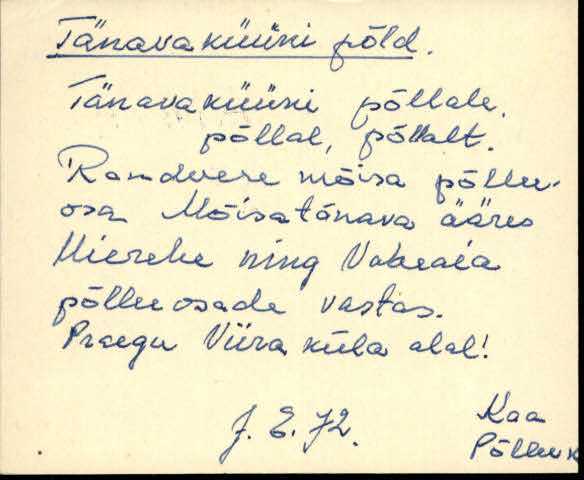 Tänavaküüni põld.
Tänavaküüni põllale,
põllal, põllalt.
Randvere mõisa põllu-
osa Mõisatänava ääres
Hierehe ning Vabeaia
põlluosade vastas.
Praegu Viira küla alal!
J. E. 72. Kaa
Põlluk